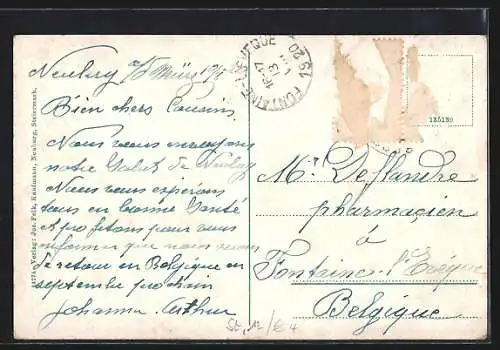 Neuberg a/d Mürz
Bien chers Cousin,
Nous vous envoyons
notre Salut de Neuberg
Nous vous espérons
tous en bonne Santé
profitons pour vous
informer que nous serons
de retour en Belgique en
septembre prochain
Johanna Arthur
Verlag: Jos. Feik, Kaufmann, Neuberg, Steiermark.
FONTAINE-L'EVEQUE
16-17
13
20
135130
Mr Deflandre
pharmacien
à
Fontaine l'Evêque
Belgique